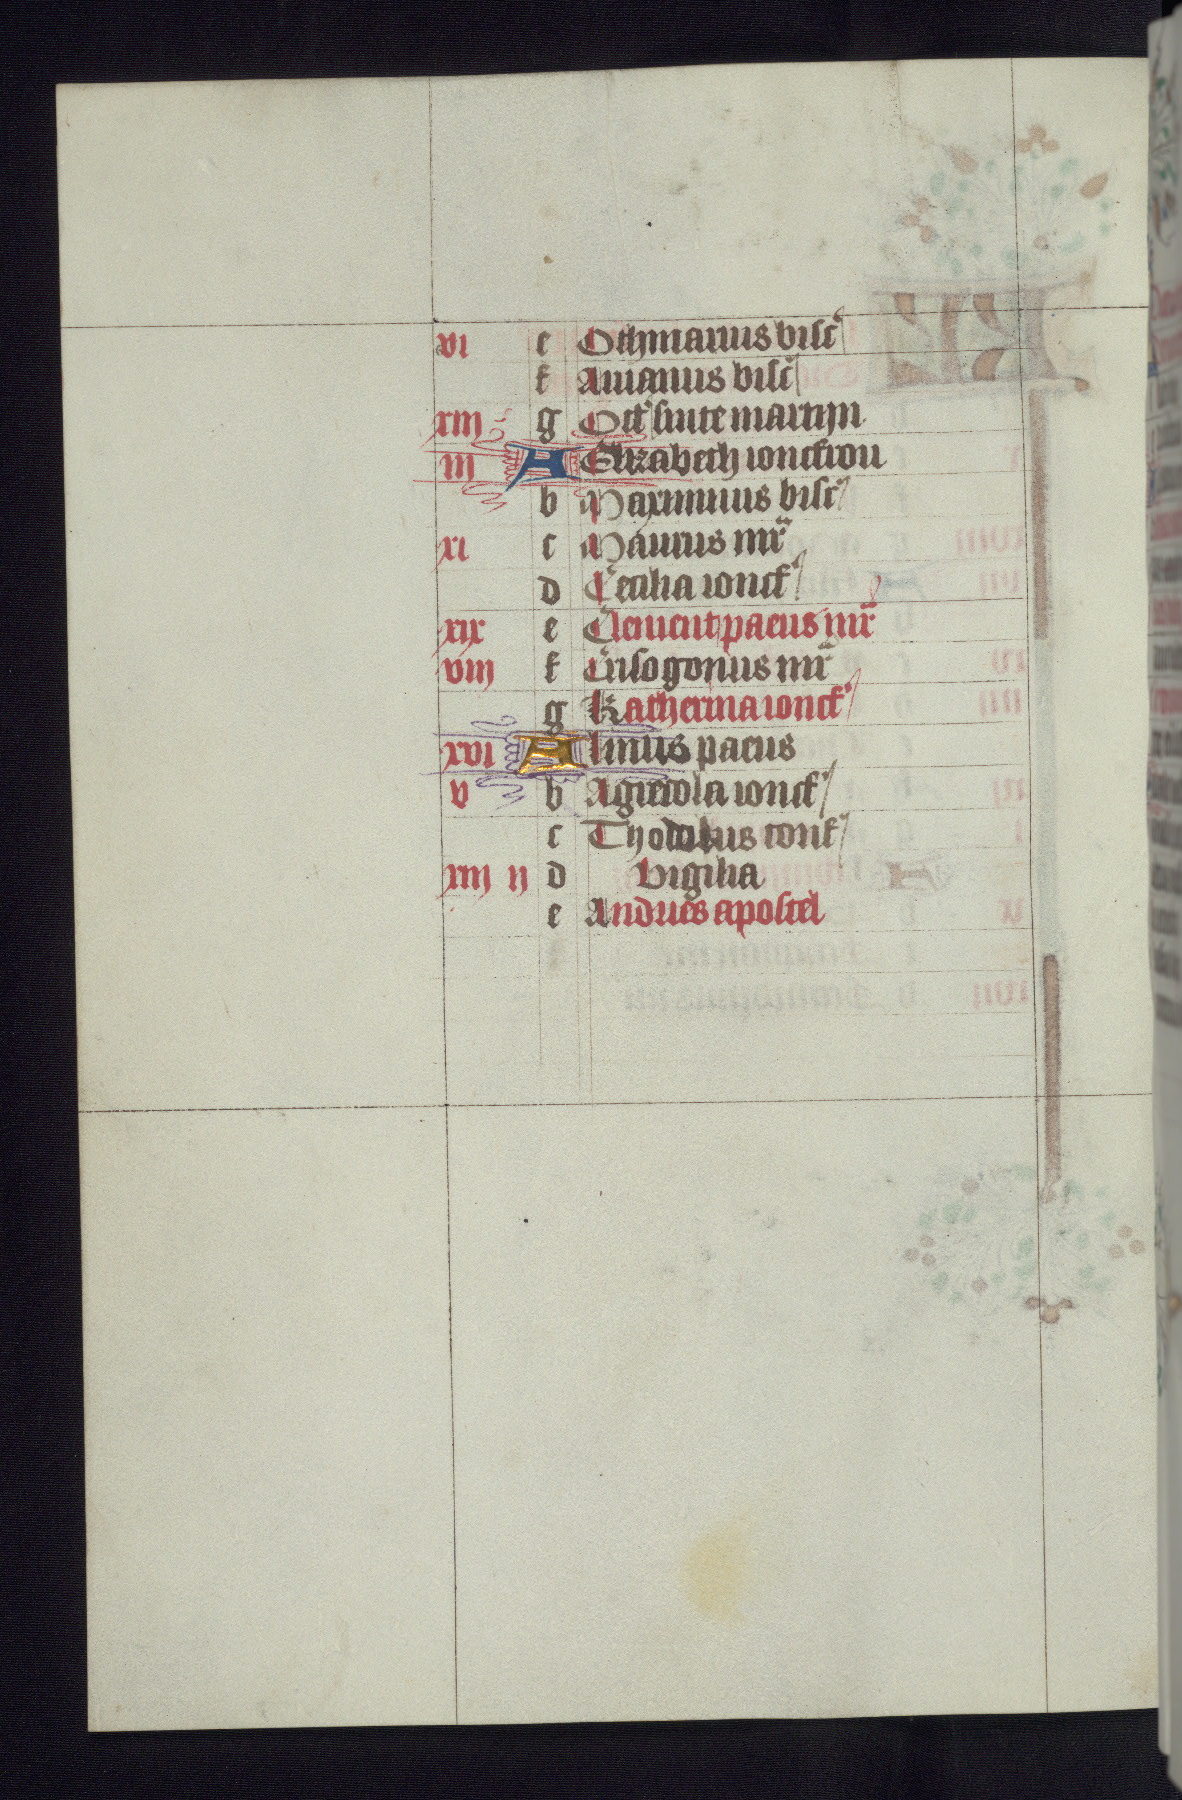 vi e Othmarius bisc
f Anianus bisc
xiij g Oct sinte martijn
iij A Elizabeth ionckvou
b Maximinus bisc
xi c Maurus mr
d Cecilia ioncf
xix e Clement paeus mr
viij f Crisogonus mr
g Katherina ioncf
xvi A linus paeus
v b Agricola ioncf
c ionf
xiiij ij d Vigilia
e Andries apostel